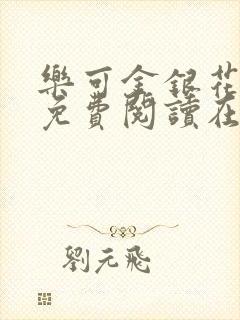 樂可金銀花
免費閱讀在
劉元飛